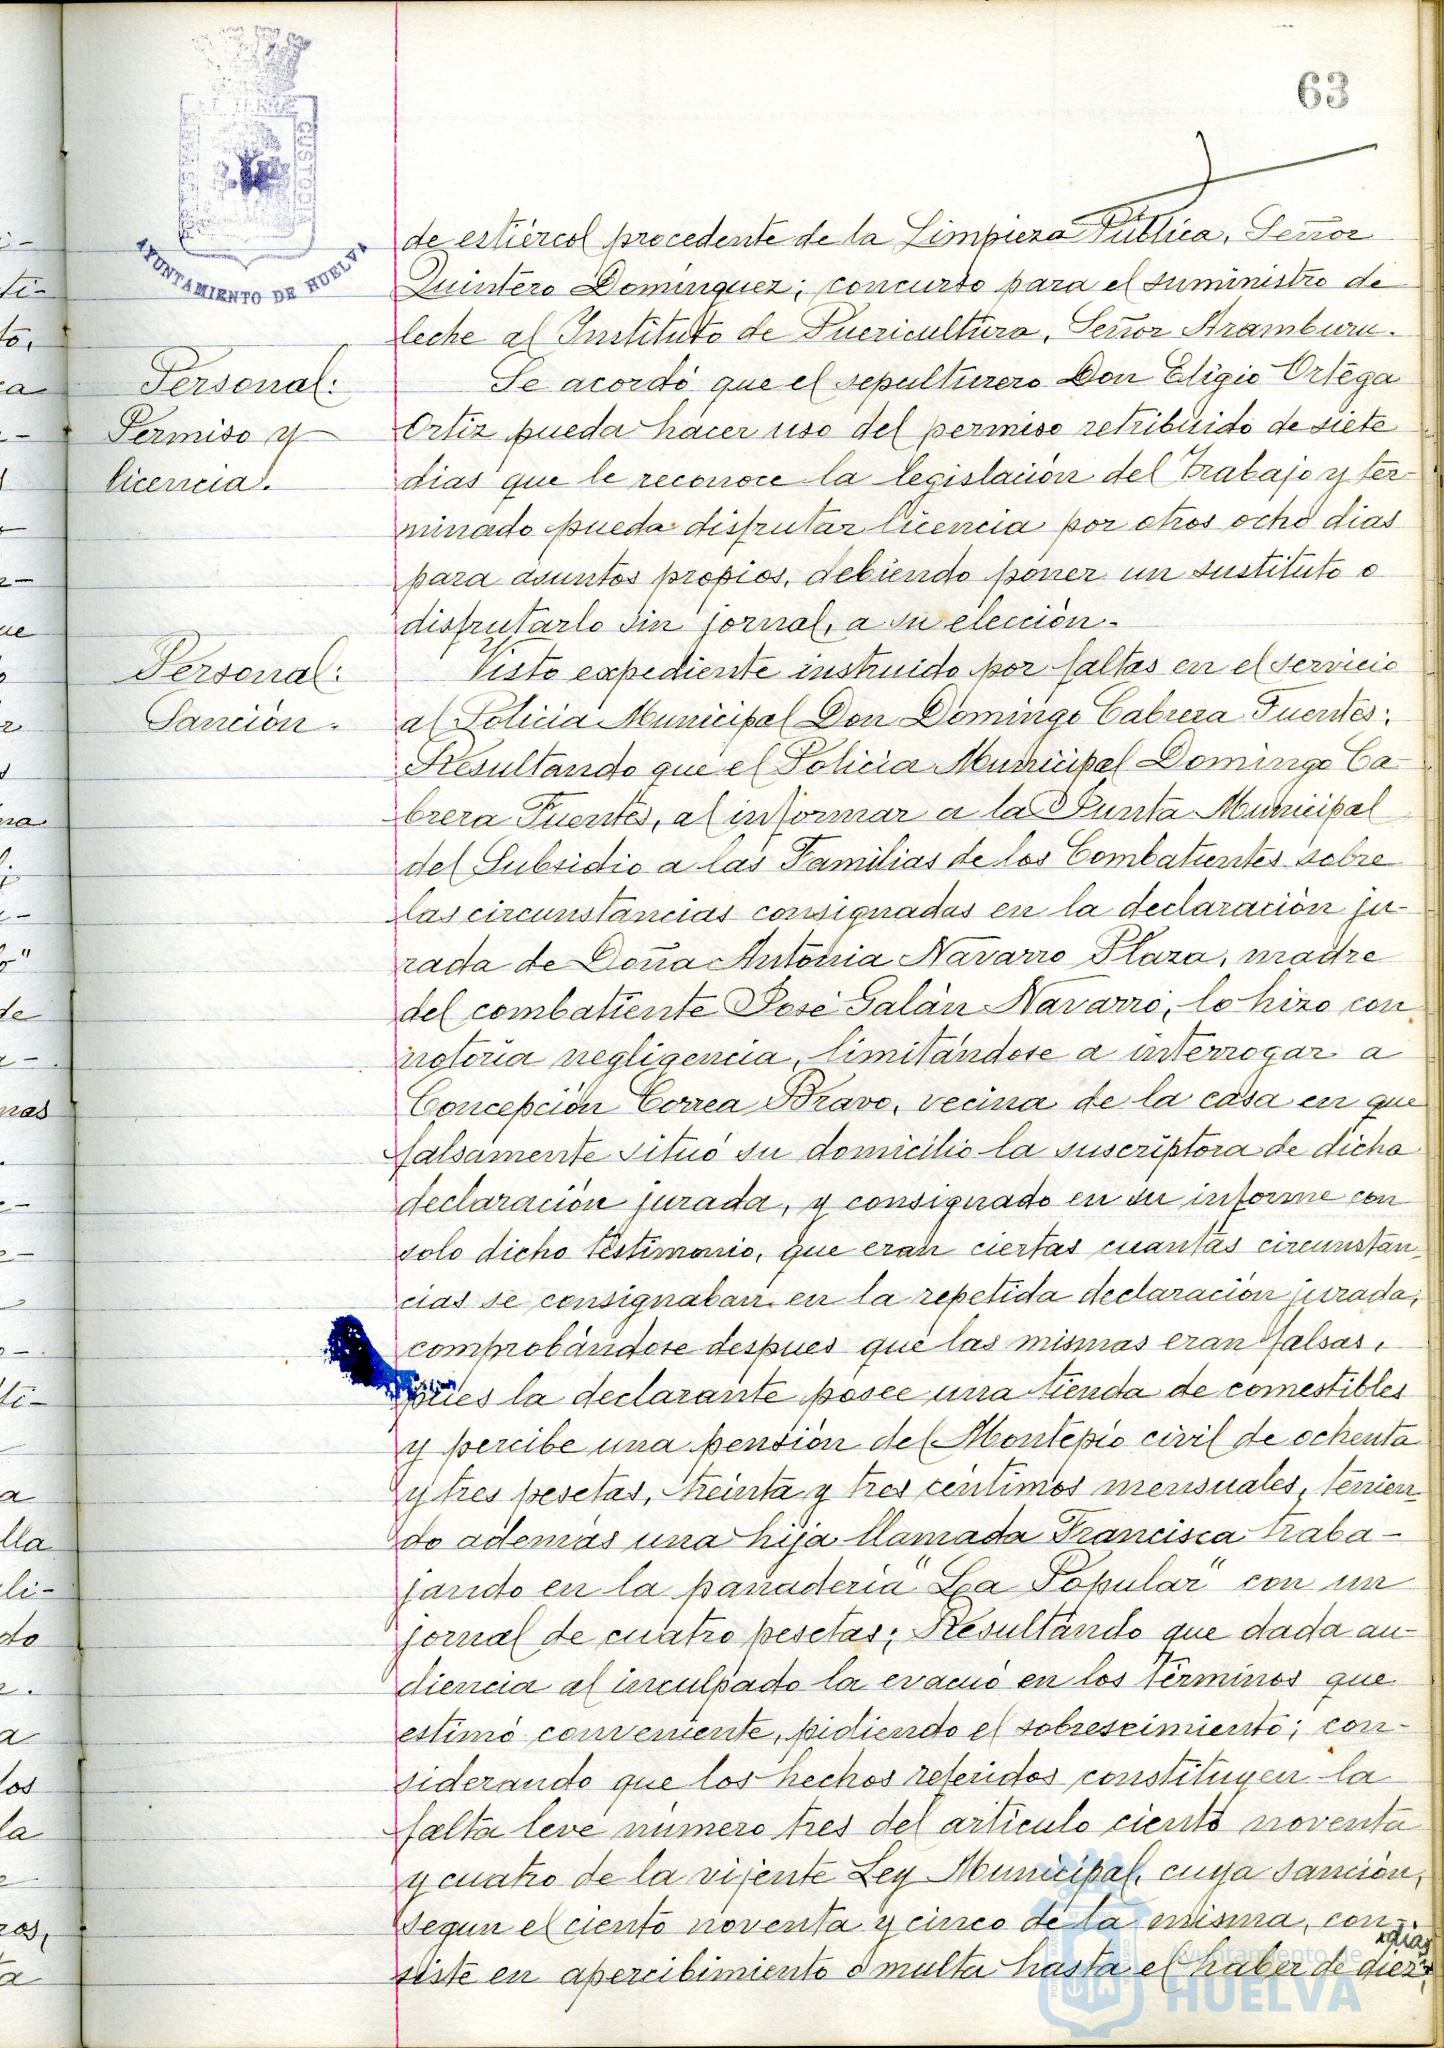 63
AYUNTAMIENTO DE HUELVA
de estiércol procedente de la Limpieza Pública, Señor
Quintero Dominguez; concurso para el suministro de
leche al Instituto de Puericultura, Señor Aramburu.
Personal:
Permiso y
licencia.
Se acordó que el sepulturero Don Eligio Ortega
Ortiz pueda hacer uso del permiso retribuido de siete
dias que le reconoce la legislación del Trabajo y ter-
minado pueda disfrutar licencia por otros ocho dias
para asuntos propios, debiendo poner un sustituto o
disfrutarlo sin jornal, a su elección.
Personal:
Sanción.
Visto expediente instruido por faltas en el servicio
al Policia Municipal Don Domingo Cabrera Fuentes;
Resultando que el Policia Municipal Domingo Ca-
brera Fuentes, al informar a la Junta Municipal
del Subsidio a las Familias de los Combatientes sobre
las circunstancias consignadas en la declaración ju-
rada de Doña Antonia Navarro Plaza, madre
del combatiente José Galán Navarro, lo hizo con
notoria negligencia, limitándose a interrogar a
Concepción Correa Bravo, vecina de la casa en que
falsamente situó su domicilio la suscriptora de dicha
declaración jurada, y consignado en su informe con
solo dicho testimonio, que eran ciertas cuantas circunstan-
cias se consignaban en la repetida declaración jurada,
comprobándose despues que las mismas eran falsas,
pues la declarante posee una tienda de comestibles
y percibe una pensión del Montepío civil de ochenta
y tres pesetas, treinta y tres céntimos mensuales, tenien-
do además una hija llamada Francisca traba-
jando en la panaderia "La Popular" con un
jornal de cuatro pesetas; Resultando que dada au-
diencia al inculpado la evacuó en los términos que
estimó conveniente, pidiendo el sobreseimiento; con-
siderando que los hechos referidos constituyen la
falta leve número tres del articulo ciento noventa
y cuatro de la vijente Ley Municipal, cuya sanción,
segun el ciento noventa y cinco de la misma, con-
siste en apercibimiento o multa hasta el haber de diez
dias
Ayuntamiento de
HUELVA